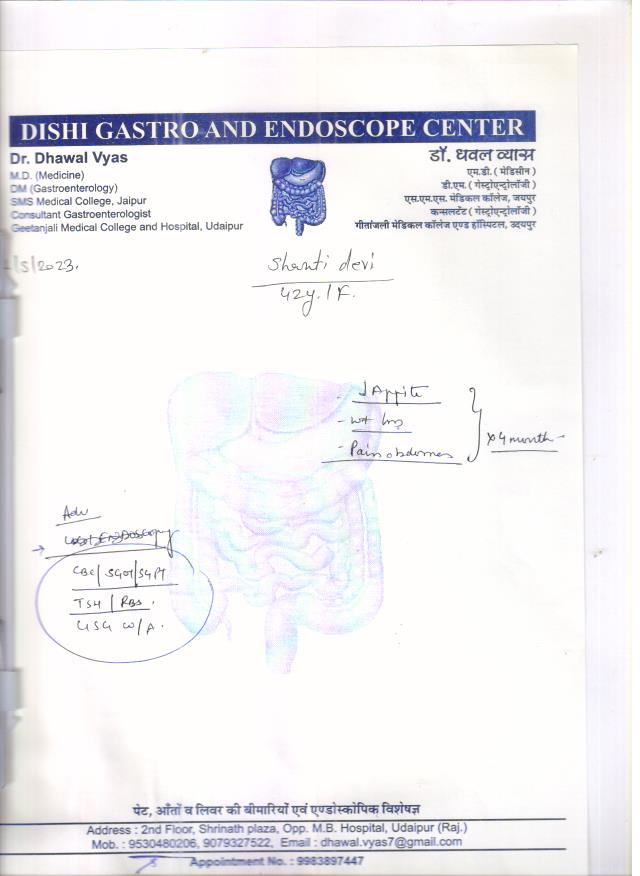 DISHI GASTRO AND ENDOSCOPE CENTER
Dr. Dhawal Vyas
M.D. (Medicine)
DM (Gastroenterology)
SMS Medical College, Jaipur
Consultant Gastroenterologist
Geetanjali Medical College and Hospital, Udaipur
डॉ. धवल व्यास
एम.डी. ( मेडिसीन )
डी.एम. ( गेस्ट्रोएन्ट्रोलॉजी )
एस.एम.एस. मेडिकल कॉलेज, जयपुर
कन्सलटेंट ( गेस्ट्रोएन्ट्रोलॉजी )
गीतांजली मेडिकल कॉलेज एण्ड हॉस्पिटल, उदयपुर
/5/2023.
Shanti devi
42y. / F.
- ↓ Appite
- wt loss
- Pain abdomen
x 4 month -
Adv
Endoscopy
CBC / SGOT / SGPT
TSH / RBS.
USG W/A.
पेट, आँतों व लिवर की बीमारियों एवं एण्डोस्कोपिक विशेषज्ञ
Address : 2nd Floor, Shrinath plaza, Opp. M.B. Hospital, Udaipur (Raj.)
Mob. : 9530480206, 9079327522, Email : dhawal.vyas7@gmail.com
Appointment No. : 9983897447